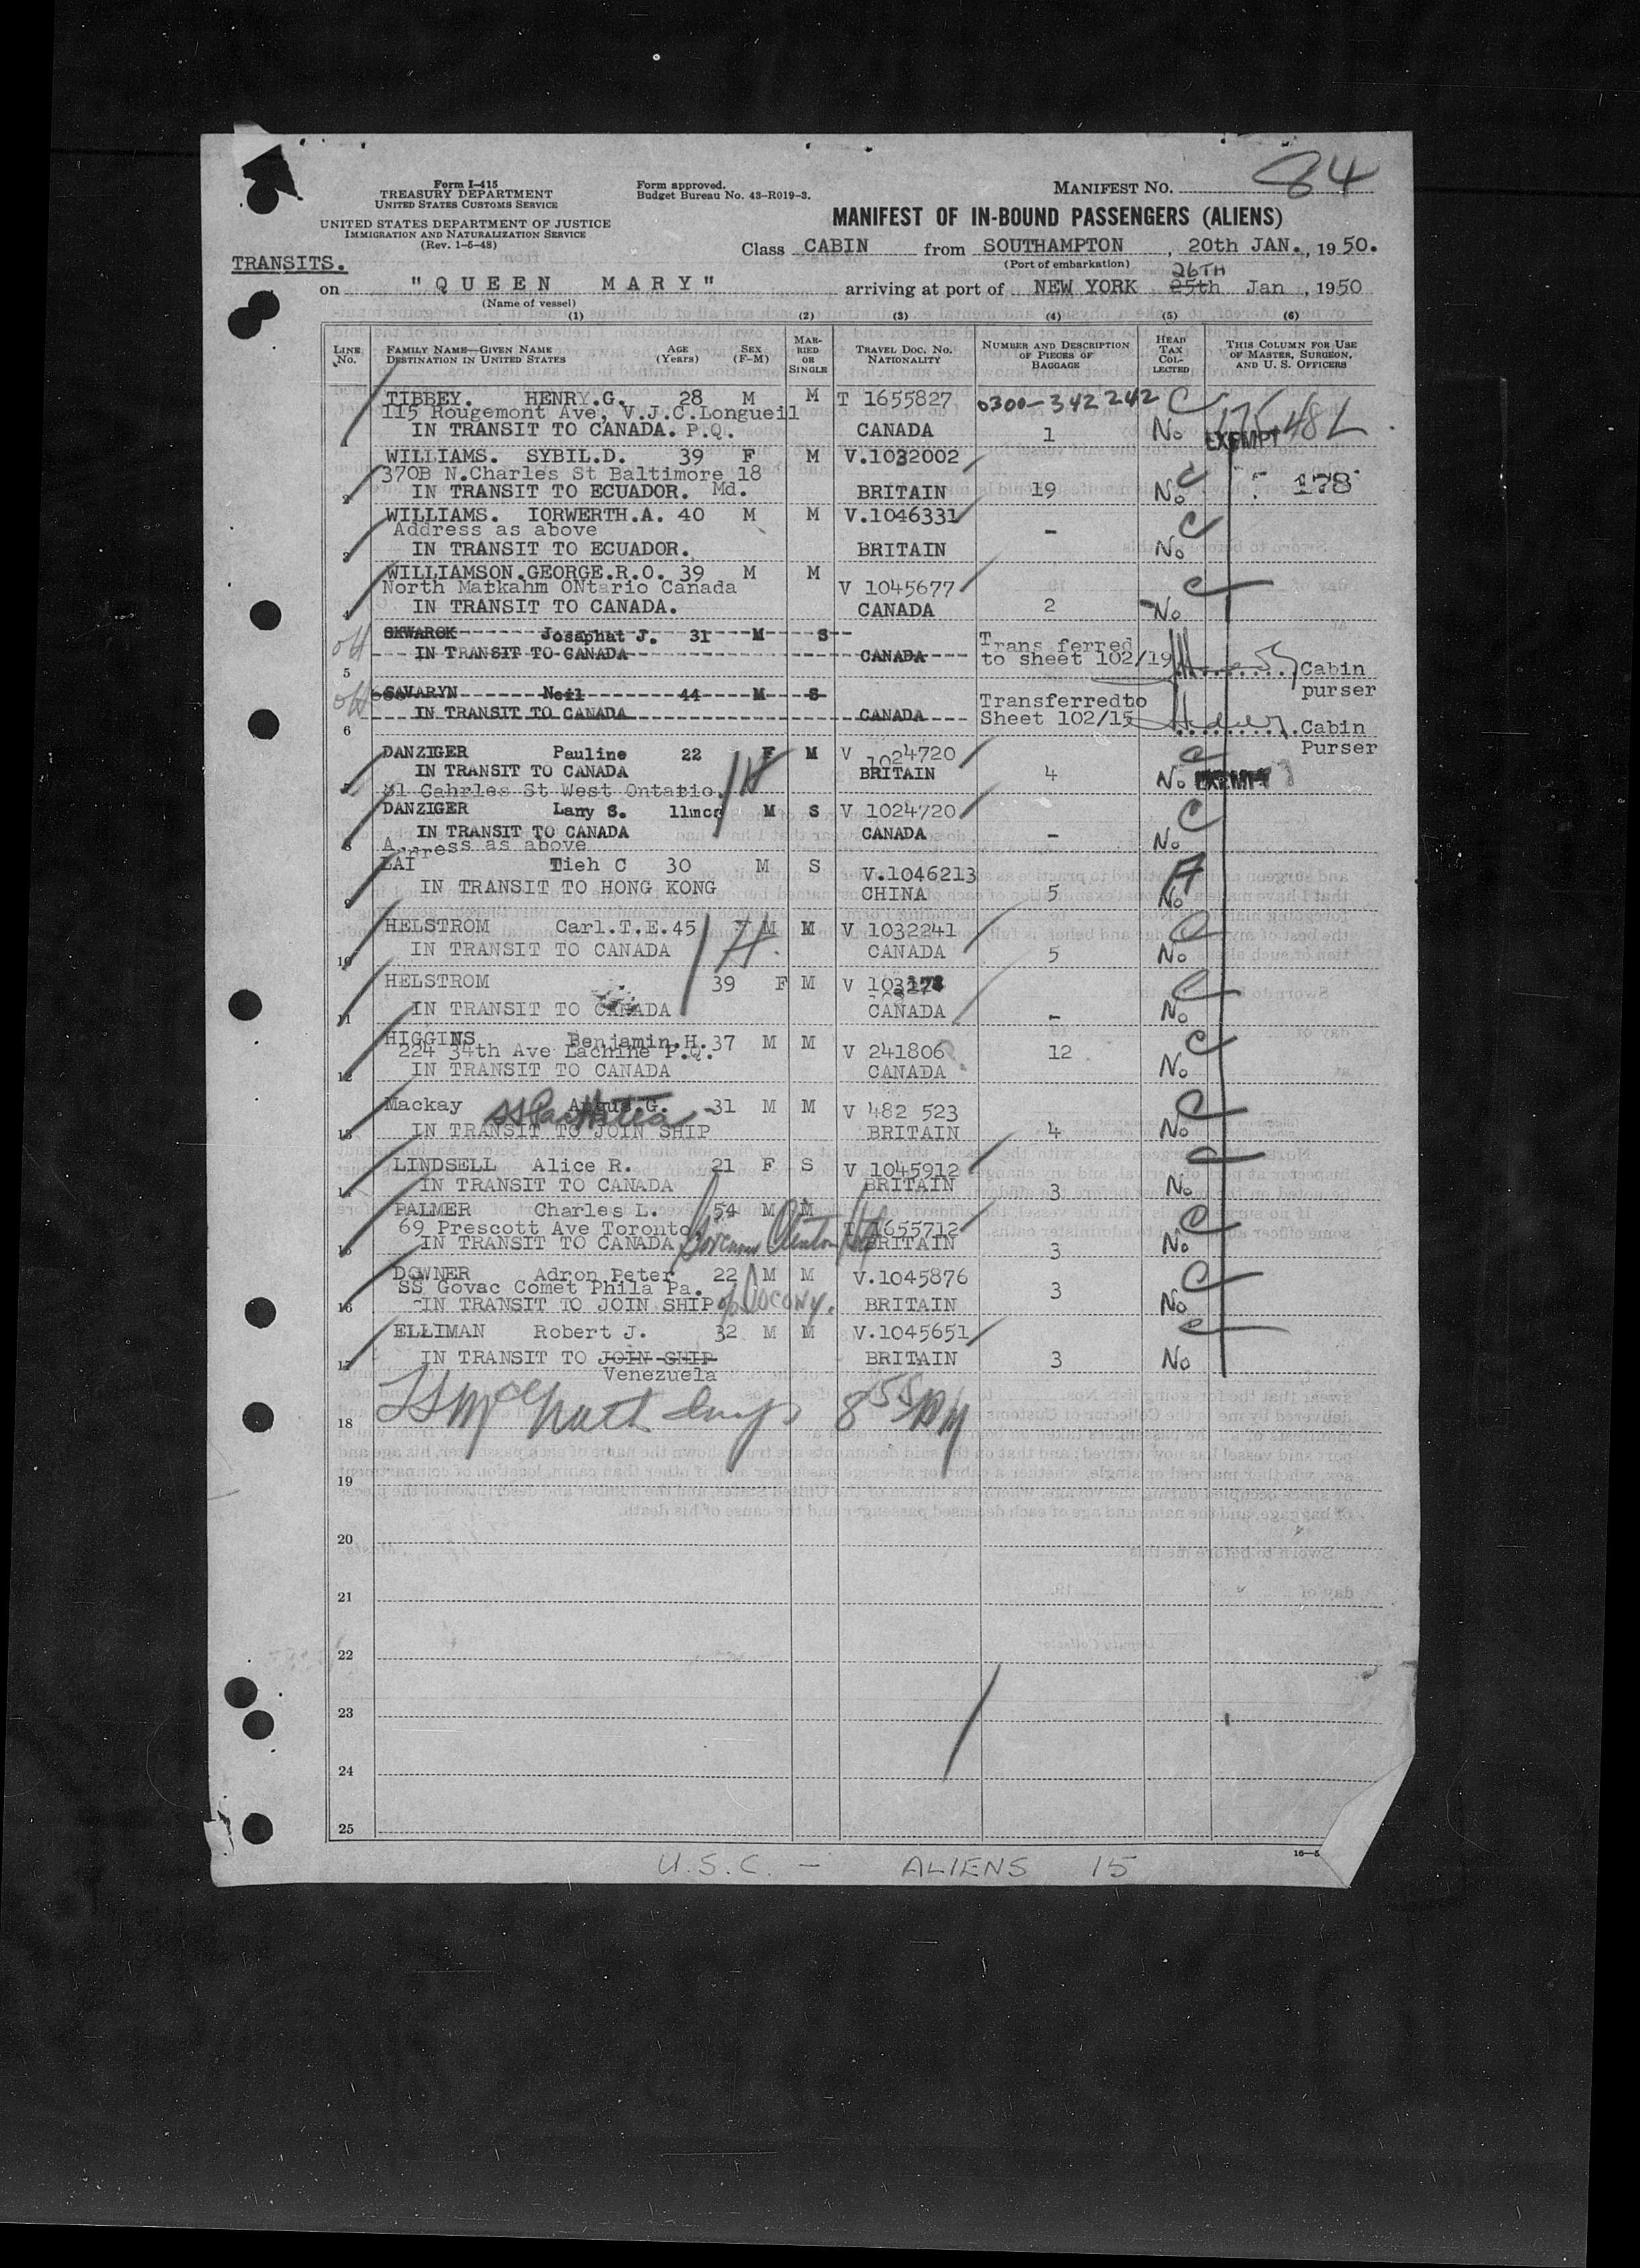 84
Form I-415
TREASURY DEPARTMENT
UNITED STATES CUSTOMS SERVICE
UNITED STATES DEPARTMENT OF JUSTICE
IMMIGRATION AND NATURALIZATION SERVICE
(Rev. 1-5-48)
Form approved.
Budget Bureau No. 43-R019-3.
MANIFEST NO.
MANIFEST OF IN-BOUND PASSENGERS (ALIENS)
Class CABIN from SOUTHAMPTON, 20th JAN., 1950.
(Port of embarkation)
TRANSITS.
26TH
on "QUEEN MARY" arriving at port of NEW YORK 25th Jan, 1950
(Name of vessel)
(1) (2) (3) (4) (5) (6)
LINE No. FAMILY NAME—GIVEN NAME DESTINATION IN UNITED STATES AGE (Years) SEX (F-M) MARRIED OR SINGLE TRAVEL DOC. NO. NATIONALITY NUMBER AND DESCRIPTION OF PIECES OF BAGGAGE HEAD TAX COLLECTED THIS COLUMN FOR USE OF MASTER, SURGEON, AND U. S. OFFICERS
TIBBEY. HENRY.G. 28 M M T 1655827 0300-342242 C
115 Rougemont Ave, V.J.C.Longueil
IN TRANSIT TO CANADA. P.Q. CANADA 1 No EXEMPT
WILLIAMS. SYBIL.D. 39 F M V.1032002
370B N.Charles St Baltimore 18 C 178
2 IN TRANSIT TO ECUADOR. Md. BRITAIN 19 No
WILLIAMS. IORWERTH.A. 40 M M V.1046331 C
Address as above -
3 IN TRANSIT TO ECUADOR. BRITAIN No
WILLIAMSON.GEORGE.R.O. 39 M M C
North Matkahm ONtario Canada V 1045677
4 IN TRANSIT TO CANADA. CANADA 2 No
off SKWAROK Josaphat J. 31 M S Trans ferred
IN TRANSIT TO CANADA CANADA to sheet 102/19 Cabin
5 purser
off SAVARYN Neil 44 M S Transferredto
IN TRANSIT TO CANADA CANADA Sheet 102/15 Cabin
6 Purser
DANZIGER Pauline 22 F M V 1024720 C
IN TRANSIT TO CANADA BRITAIN 4 No EXEMPT
7 81 Cahrles St West Ontario.
DANZIGER Lany S. 11mcs M S V 1024720 C
IN TRANSIT TO CANADA CANADA - No
8 Address as above
LAI Tieh C 30 M S V.1046213 A
9 IN TRANSIT TO HONG KONG CHINA 5 No
HELSTROM Carl.T.E. 45 M M V 1032241 C
10 IN TRANSIT TO CANADA CANADA 5 No
HELSTROM 39 F M V C
11 IN TRANSIT TO CANADA CANADA - No
HIGGINS Benjamin.H. 37 M M V 241806 12 C
224 34th Ave Lachine P.Q.
12 IN TRANSIT TO CANADA CANADA No
Mackay Angus G. 31 M M V 482 523 C
13 IN TRANSIT TO JOIN SHIP BRITAIN 4 No
LINDSELL Alice R. 21 F S V 1045912 C
14 IN TRANSIT TO CANADA BRITAIN 3 No
PALMER Charles L. 54 M M C
69 Prescott Ave Toronto T 1655712
15 IN TRANSIT TO CANADA Governor Clinton Htl BRITAIN 3 No
DOWNER Adron Peter 22 M M V.1045876 C
SS Govac Comet Phila Pa. 3
16 IN TRANSIT TO JOIN SHIP Socony. BRITAIN No
ELLIMAN Robert J. 32 M M V.1045651 C
17 IN TRANSIT TO JOIN SHIP BRITAIN 3 No
Venezuela
18
19
20
21
22
23
24
25
16—5
U.S.C. - ALIENS 15